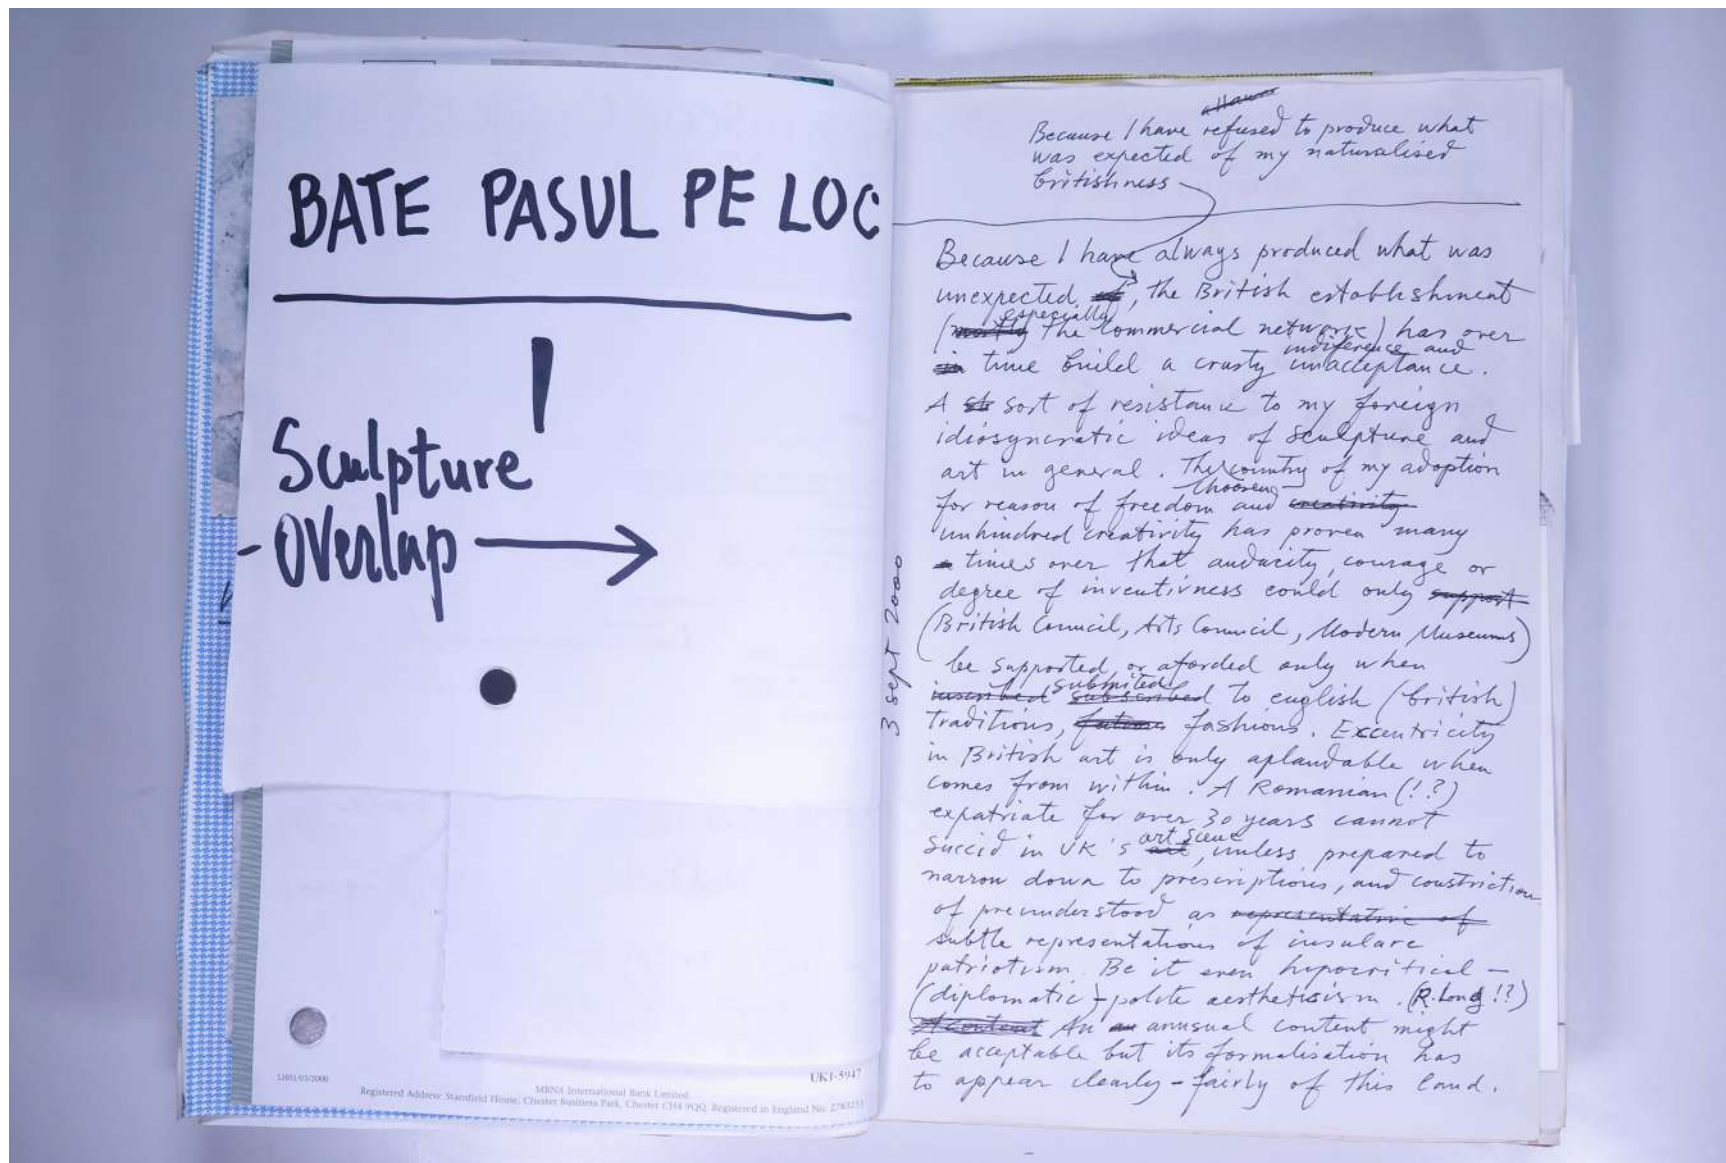 BATE PASUL PE LOC
!
Sculpture
-Overlap →
LH01/03/2000
UK1-5947
MBNA International Bank Limited.
Registered Address: Stansfield House, Chester Business Park, Chester CH4 9QQ. Registered in England No: 2783251
3 Sept 2000
Because I have refused to produce what
was expected of my naturalised
britishness
Because I have always produced what was
unexpected, the British establishment
(especially the commercial network) has over
time build a crusty indiference and unacceptance.
A sort of resistance to my foreign
idiosyncratic ideas of sculpture and
art in general. The country of my adoption
for reason of freedom and
unhindred creativity has proven many
times over that audacity, courage or
degree of inventivness could only
(British Council, Arts Council, Modern Museums)
be supported or aforded only when
submited to english (british)
traditions, fashions. Excentricity
in British art is only aplaudable when
comes from within. A Romanian (!?)
expatriate for over 30 years cannot
succid in UK's art scene, unless prepared to
narrow down to prescriptions, and constriction
of preunderstood as
subtle representations of insulare
patriotism. Be it even hypocritical -
(diplomatic) - polite aesthetisism. (R. Long !?)
An unusual content might
be acceptable but its formalisation has
to appear clearly - fairly of this land.